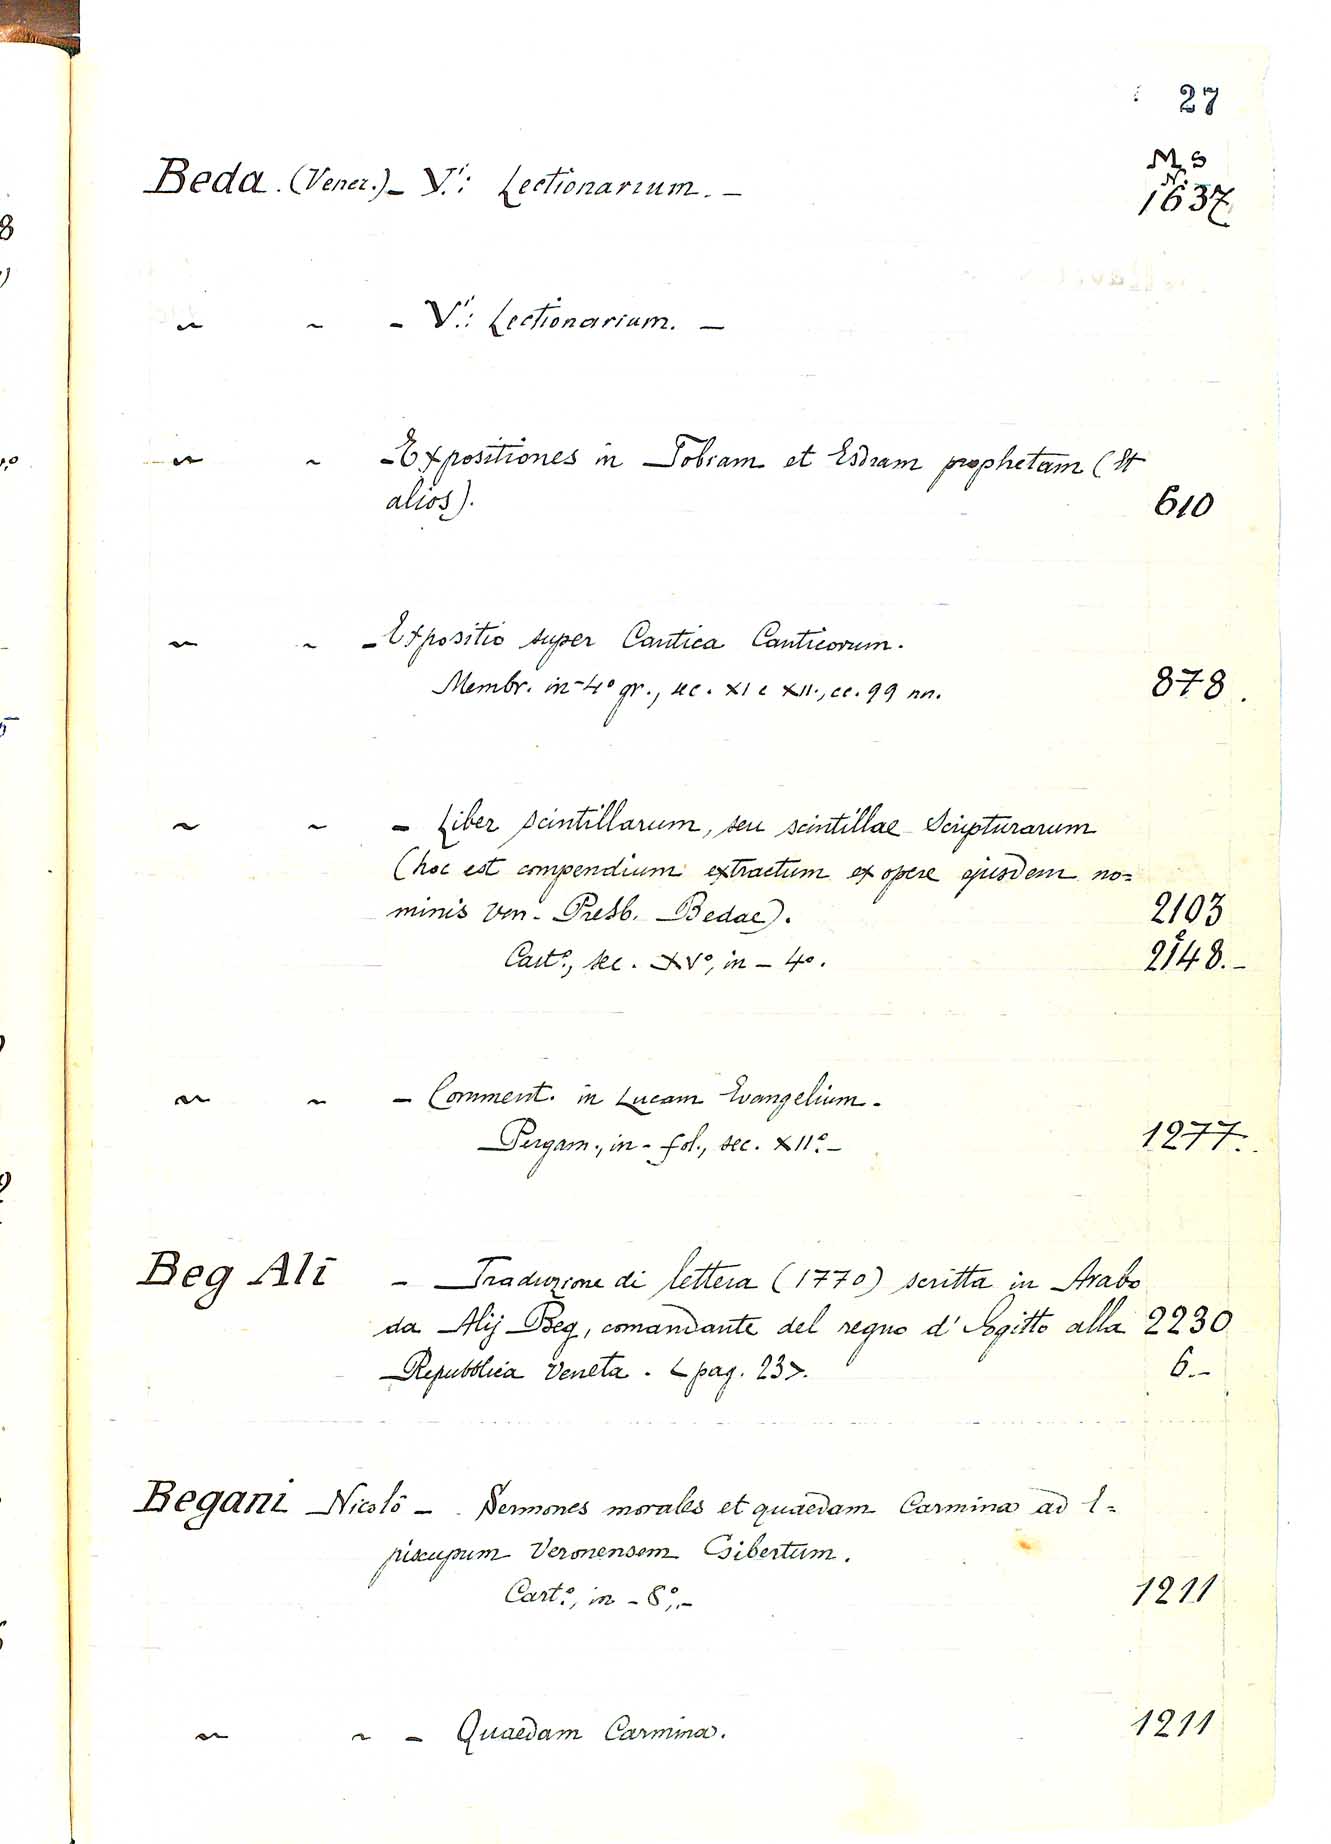 27
Ms
N.
Beda (Vener.) - V.i: Lectionarium. - 1637
~ ~ - V.i: Lectionarium. -
~ ~ - Expositiones in Tobiam et Esdram prophetam (Et
alios). 610
~ ~ - Expositio super Cantica Canticorum.
Membr. in-4° gr., sec. XI e XII., cc. 99 nn. 878.
~ ~ - Liber scintillarum, seu scintillae Scripturarum
(hoc est compendium extractum ex opere ejusdem no=
minis Ven. Presb. Bedae). 2103
e
Cart°., sec. XV°, in - 4°. 2148.-
~ ~ - Comment. in Lucam Evangelium.
Pergam., in - fol., sec. XII°.- 1277.
Beg Alì - Traduzione di lettera (1770) scritta in Arabo
da Alij Beg, comandante del regno d'Egitto alla 2230
Repubblica Veneta. <pag. 23>. 6.-
Begani Nicolò - Sermones morales et quaedam Carmina ad E=
piscupum Veronensem Gibertum.
Cart°., in - 8°.- 1211
~ ~ - Quaedam Carmina. 1211